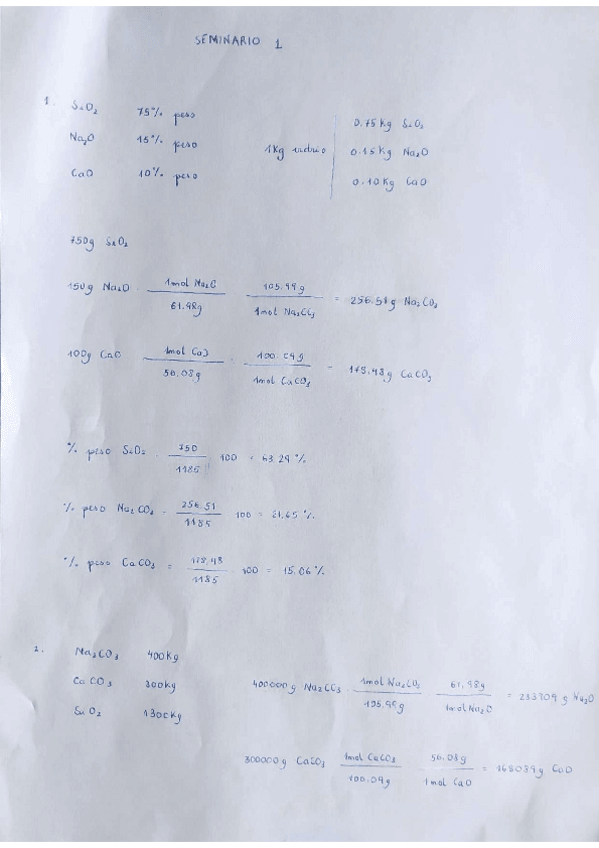 SEMINARIO 1
1. SiO₂ 75% peso
Na₂O 15% peso
CaO 10% peso
1Kg vidrio
0.75 Kg SiO₂
0.15 Kg Na₂O
0.10 Kg CaO
750g SiO₂
150g Na₂O · 1mol Na₂O / 61.98g · 105.99g / 1mol Na₂CO₃ = 256.51g Na₂CO₃
100g CaO · 1mol CaO / 56.08g · 100.09g / 1mol CaCO₃ = 178.48g CaCO₃
% peso SiO₂ = 750 / 1185 · 100 = 63.29%
% peso Na₂CO₃ = 256.51 / 1185 · 100 = 21.65%
% peso CaCO₃ = 178.48 / 1185 · 100 = 15.06%
2. Na₂CO₃ 400Kg
CaCO₃ 300Kg
SiO₂ 1300Kg
400000g Na₂CO₃ · 1mol Na₂CO₃ / 105.99g · 61.98g / 1mol Na₂O = 233909g Na₂O
300000g CaCO₃ · 1mol CaCO₃ / 100.09g · 56.08g / 1mol CaO = 168089g CaO